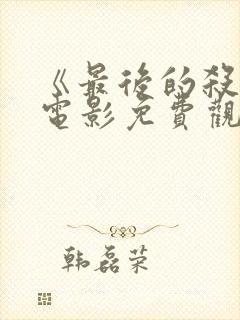 《最後的殺
電影免費觀
韩磊荣